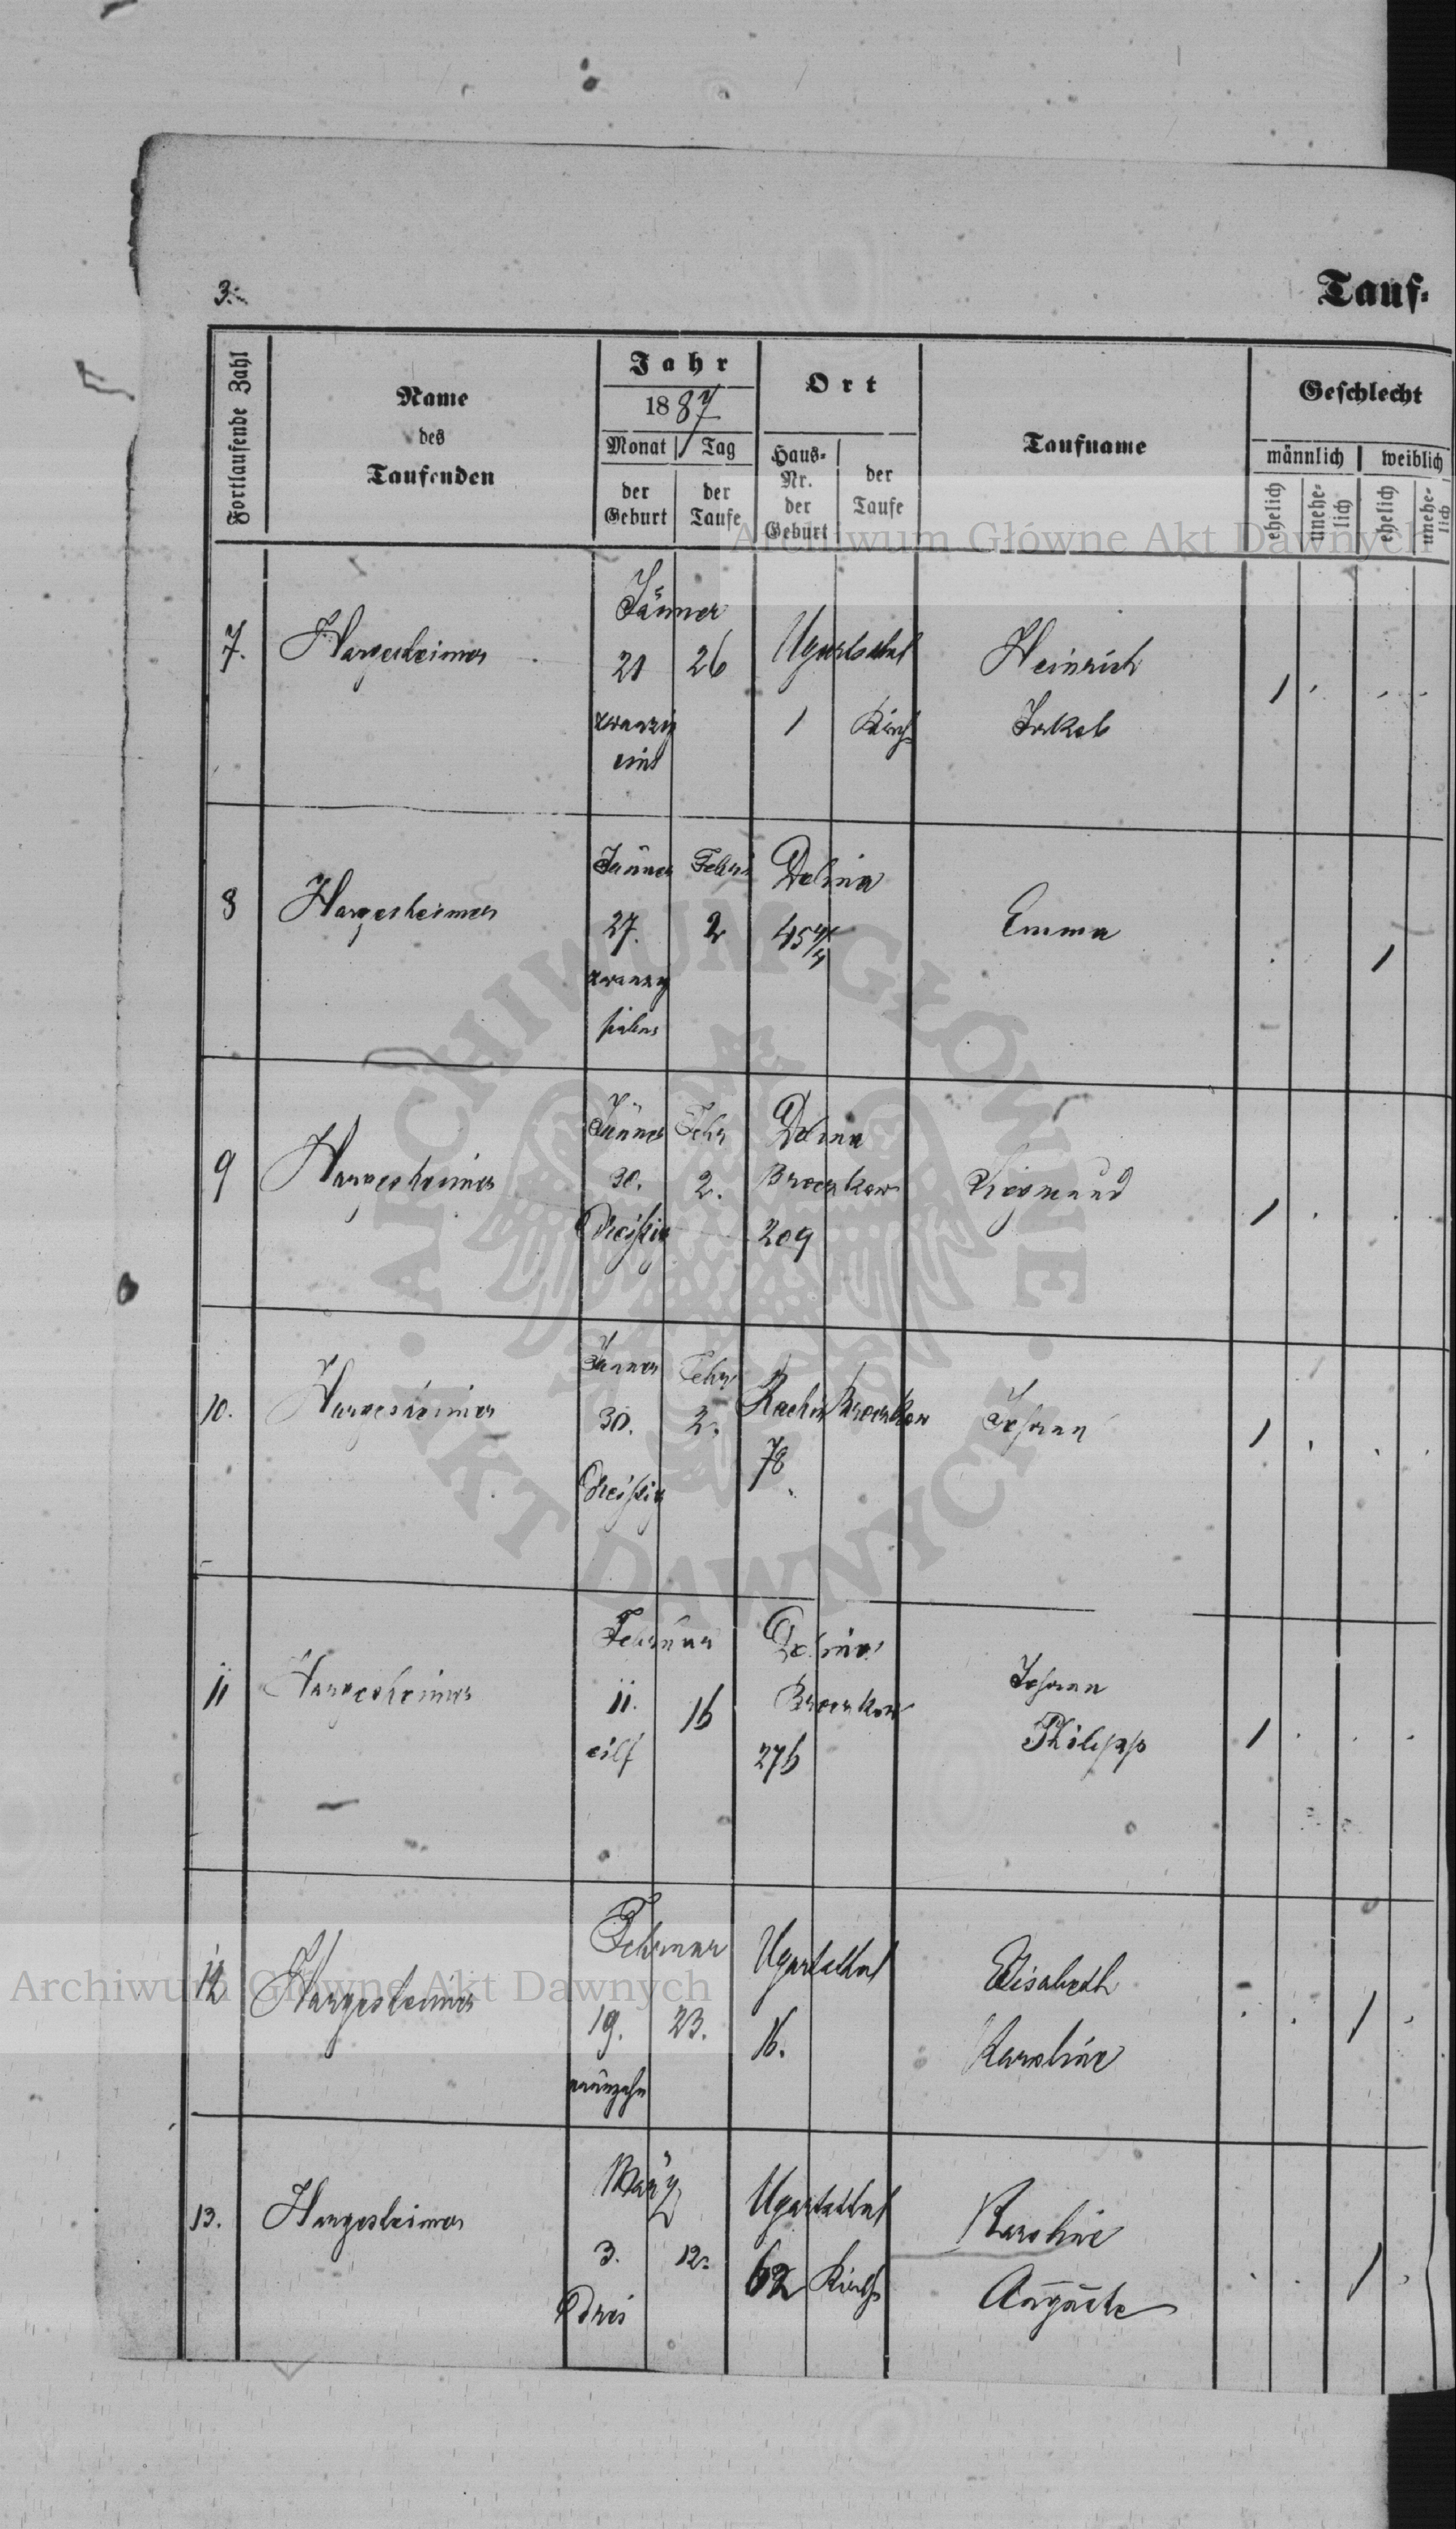 3.
Tauf-
Fortlaufende Zahl
Name
des
Taufenden
Jahr
1887
Monat
Tag
der
Geburt
der
Taufe
Ort
Haus-
Nr.
der
Geburt
der
Taufe
Taufname
Geschlecht
männlich
weiblich
ehelich
unehe-
lich
ehelich
unehe-
lich
Archiwum Główne Akt Dawnych
7.
Hargesheimer
Jänner
21
26
zwanzig
eins
Ugartsthal
1
Kirche
Heinrich
Jakob
1
8
Hargesheimer
Jänner
Febr
27.
2
zwanzig
sieben
Dolina
45
Emma
1
9
Hargesheimer
Jänner
Febr
30.
2.
Dreißig
Dolina
Broczkow
209
Siegmund
1
10.
Hargesheimer
Jänner
Febr
30.
2.
Dreißig
Rachin
Broczkow
78
Johann
1
11
Hargesheimer
Februar
11.
16
eilf
Dolina
Broczkow
276
Johann
Philipp
1
12
Hargesheimer
Februar
19.
23.
neunzehn
Ugartsthal
16.
Elisabeth
Karoline
1
13.
Hargesheimer
März
3.
12.
Drei
Ugartsthal
62
Kirche
Karoline
Auguste
1
ARCHIWUM GŁÓWNE AKT DAWNYCH
Archiwum Główne Akt Dawnych